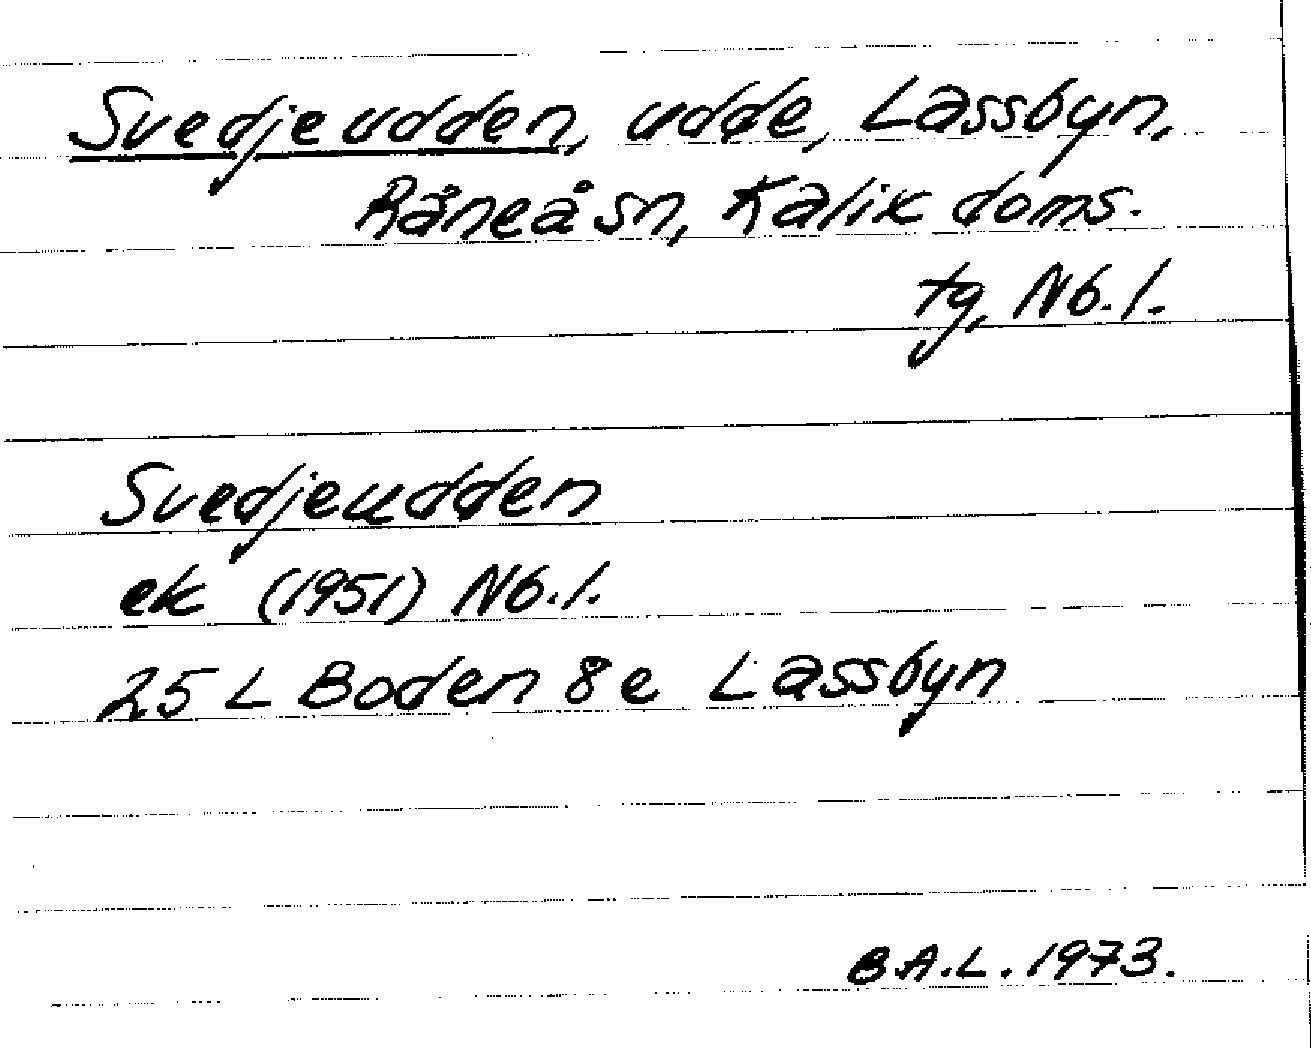 Svedjeudden, udde, Lassbyn,
Råneå sn, Kalix doms.
tg, Nb.l.
Svedjeudden
ek (1951) Nb.l.
25 L Boden 8e Lassbyn
B.A.L. 1973.